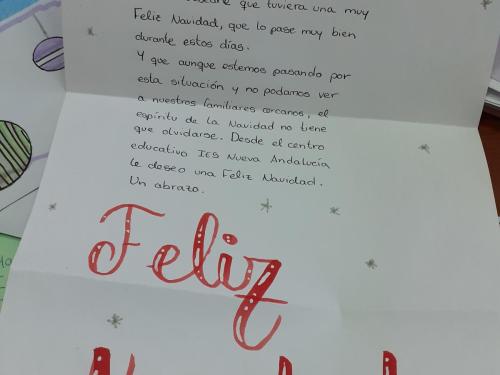 que tuviera una muy
Feliz Navidad, que lo pase muy bien
durante estos días.
Y que aunque estemos pasando por
esta situación y no podamos ver
a nuestros familiares cercanos, el
espíritu de la Navidad no tiene
que olvidarse. Desde el centro
educativo IES Nueva Andalucía
le deseo una Feliz Navidad.
Un abrazo.
Feliz